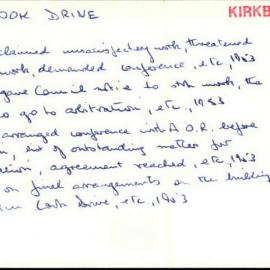 OOK DRIVE
KIRKB
claimed unsatisfactory work, threatened
work, demanded conference, etc, 1953
gave Council notice to stop work, the
to go to arbitration, etc, 1953
arranged conference with A.O.R. before
list of outstanding matter for
agreement reached, etc, 1953
on final arrangements on the building
Cook Drive, etc, 1953